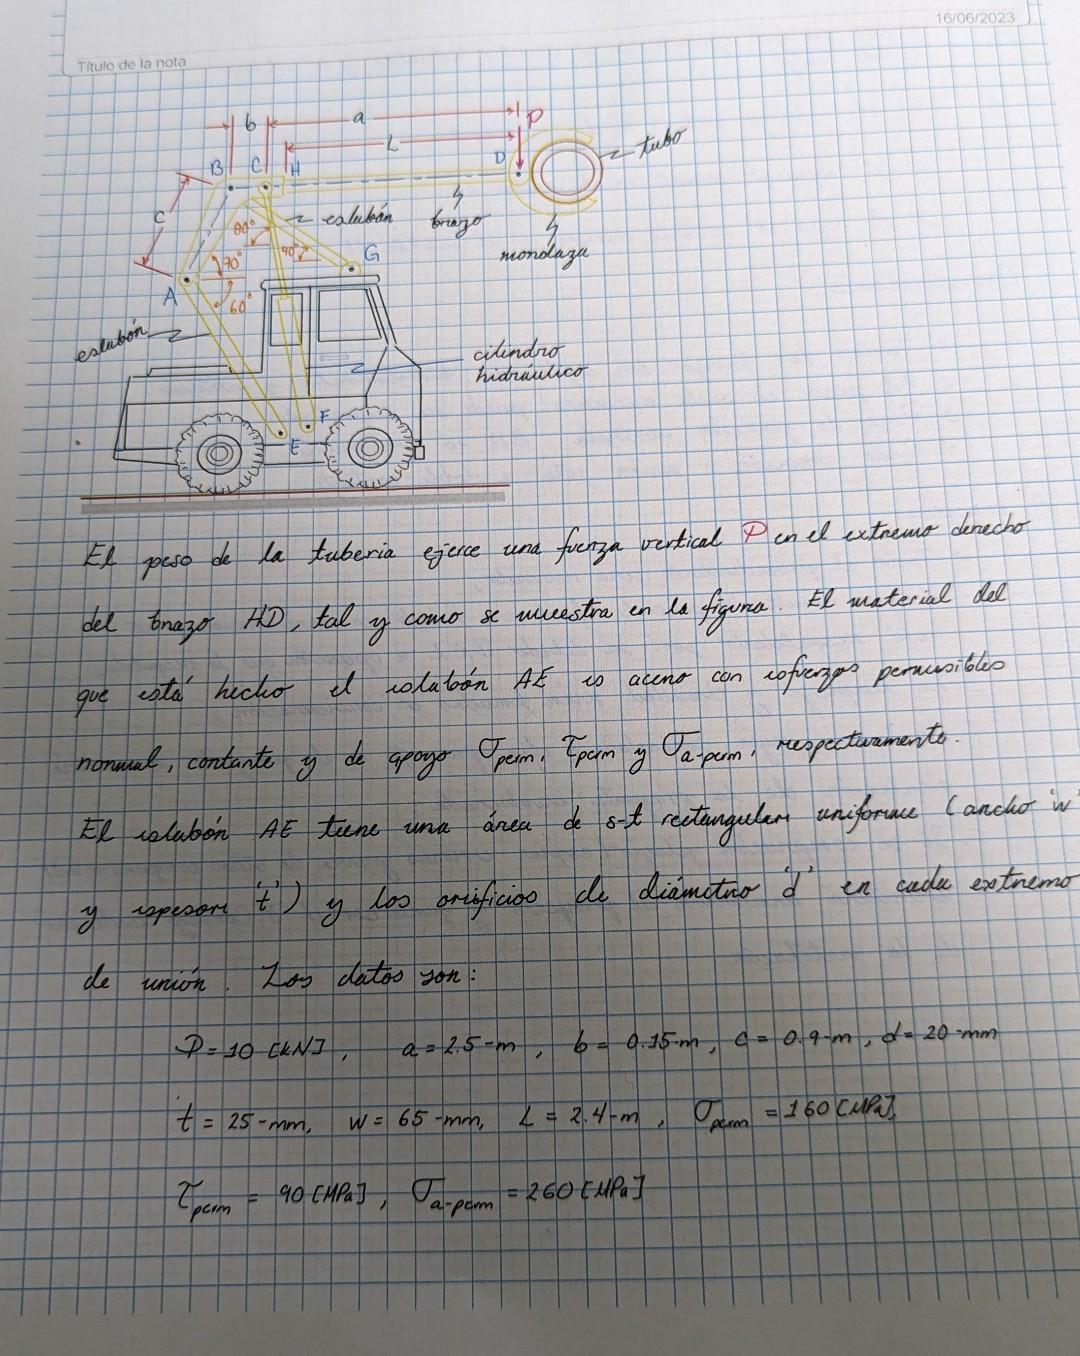 16/06/2023
Título de la nota
b
a
P
L
tubo
B C H
D
c
eslabón
brazo
80°
mordaza
70°
40°
G
A
60°
eslabón
cilindro
hidráulico
F
E
El peso de la tuberia ejerce una fuerza vertical P en el extremo derecho
del brazo HD, tal y como se muestra en la figura. El material del
que está hecho el eslabón AE es acero con esfuerzos permisibles
normal, cortante y de apoyo σperm, τperm y σa-perm, respectivamente.
El eslabón AE tiene una área de s-t rectangular uniforme (ancho 'w'
y espesor 't') y los orificios de diámetro 'd' en cada extremo
de unión. Los datos son:
P = 10 [kN], a = 2.5-m, b = 0.15-m, c = 0.9-m, d = 20-mm
t = 25-mm, w = 65-mm, L = 2.4-m, σperm = 160 [MPa],
τperm = 90 [MPa], σa-perm = 260 [MPa]